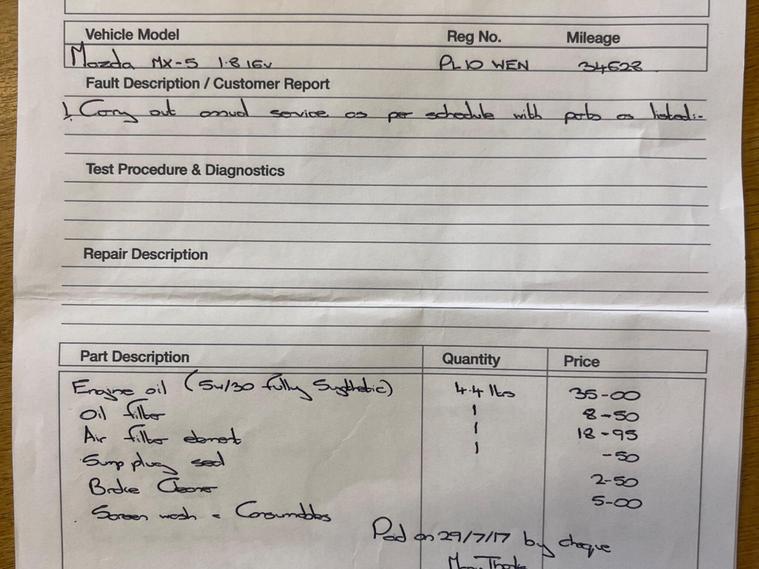 Vehicle Model Reg No. Mileage
Mazda MX-5 1.8 16v PL10 WEN 34528
Fault Description / Customer Report
1. Carry out annual service as per schedule with parts as listed:-
Test Procedure & Diagnostics
Repair Description
Part Description Quantity Price
Engine oil (5w/30 fully Synthetic) 4.4 ltrs 35-00
Oil filter 1 8-50
Air filter element 1 18-95
Sump plug seal 1 -50
Brake Cleaner 2-50
Screen wash + Consumables 5-00
Paid on 29/7/17 by cheque
Many Thanks